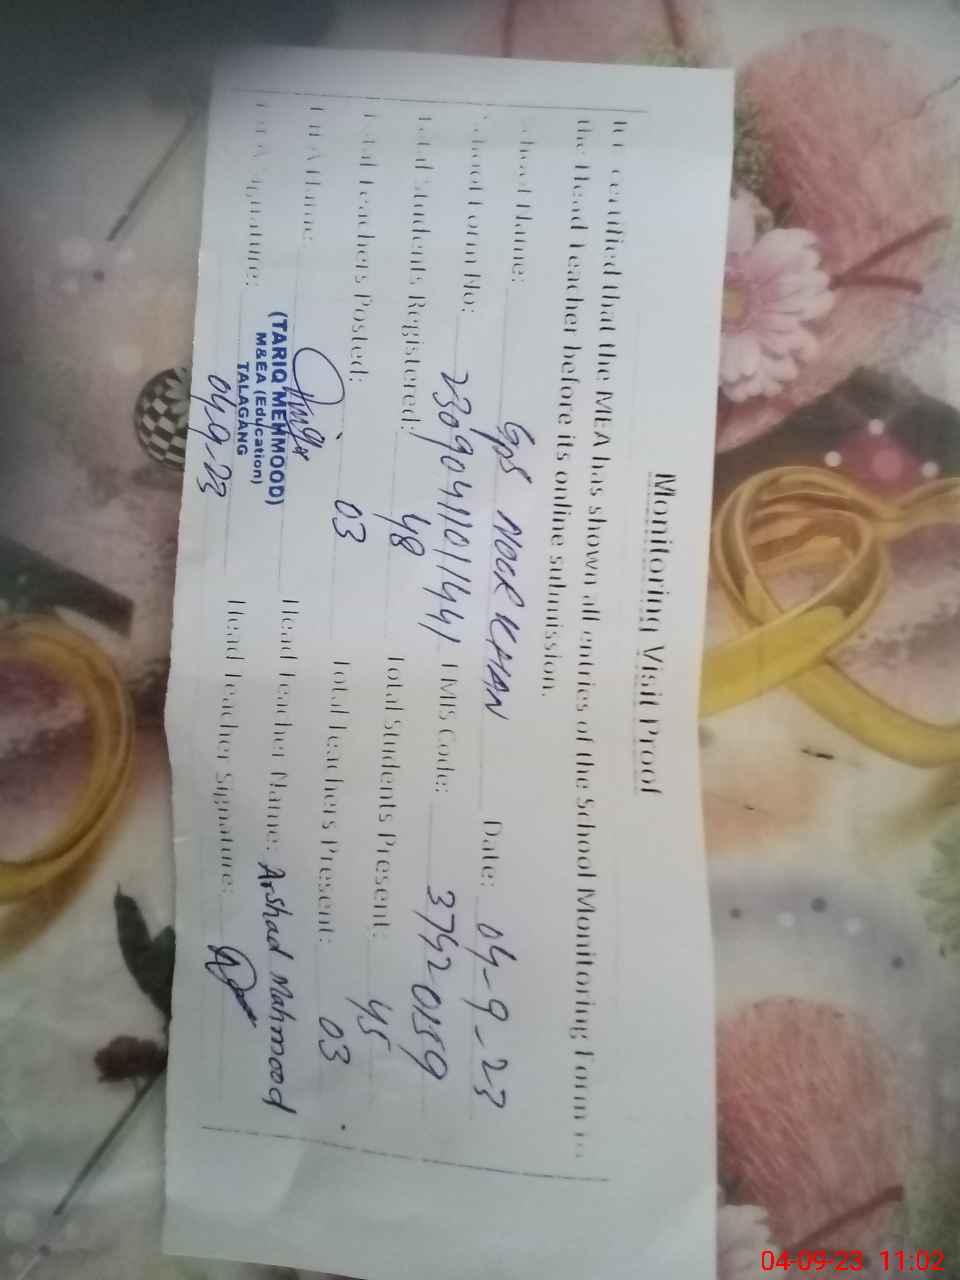 Monitoring Visit Proof
It is certified that the MEA has shown all entries of the School Monitoring Form to
the Head Teacher before its online submission.
School Name: GPS NOOR KHAN Date: 04-9-23
School Form No: EMIS Code: 37420159
Total Students Registered: 48 Total Students Present: 45
Total Teachers Posted: 03 Total Teachers Present: 03
MEA Name: Head Teacher Name: Arshad Mahmood
MEA Signature: Head Teacher Signature:
(TARIQ MEHMOOD)
M&EA (Education)
TALAGANG
04-9-23
04-09-23 11:02